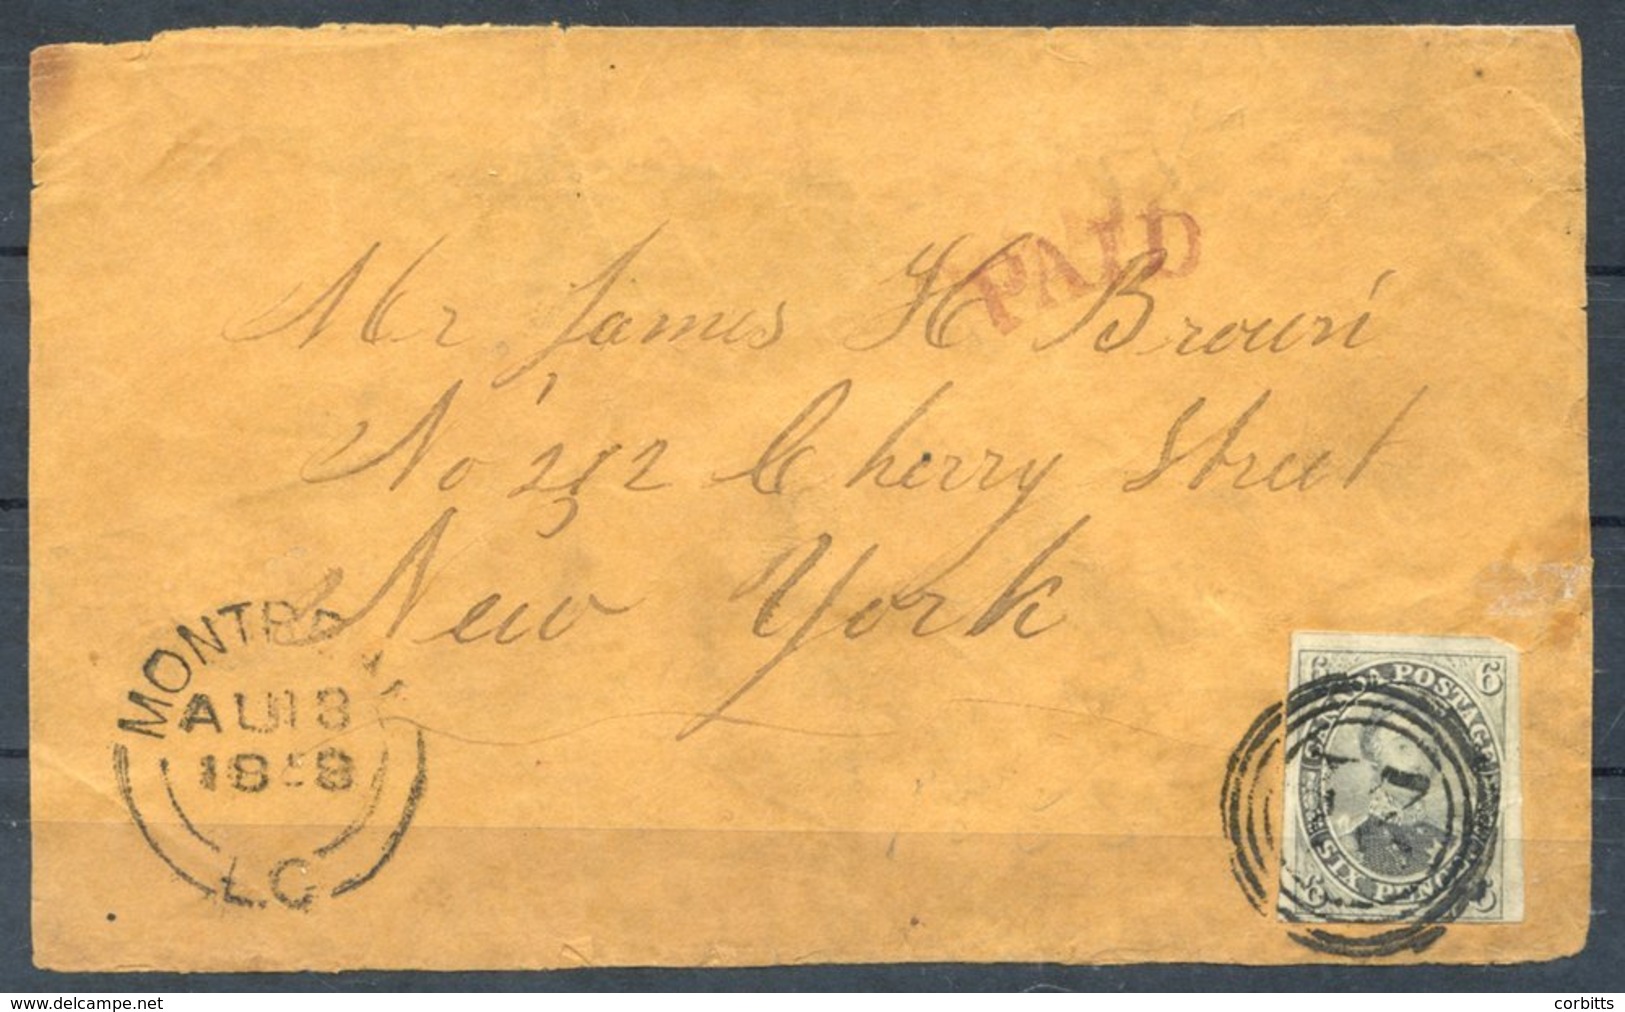 PAID
Mr James H Brown
No 212 Cherry Street
New York
MONTREAL
AU 13
1858
L.C
6 6
CANADA POSTAGE
SIX PENCE
6 6
21
© www.delcampe.net
corbitts